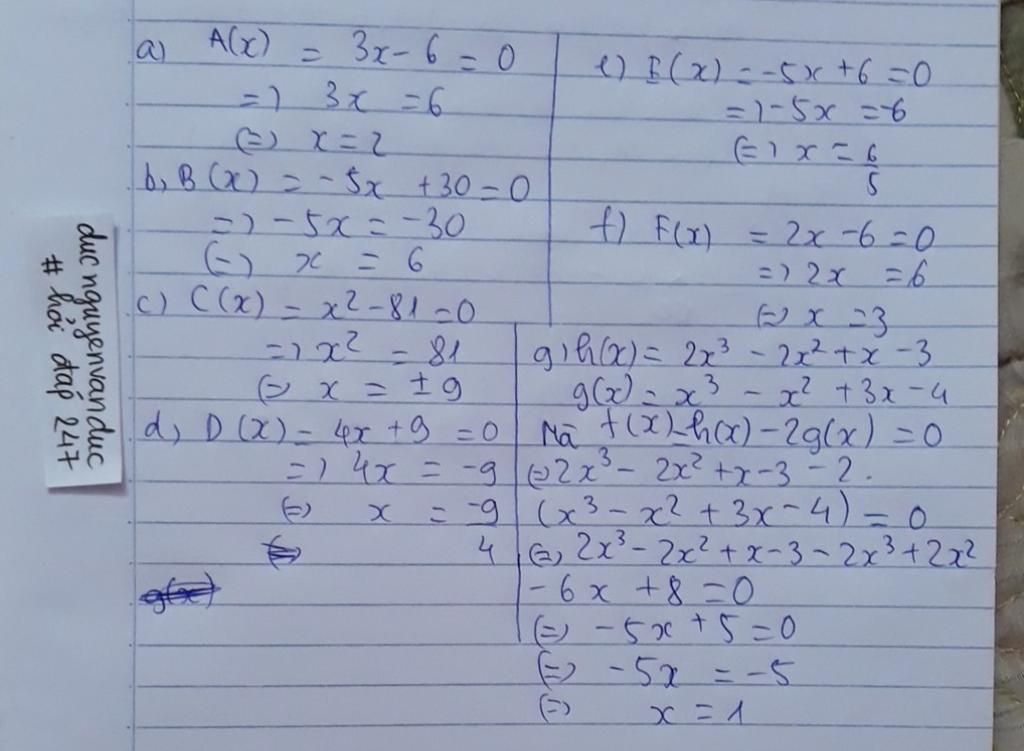 a) A(x) = 3x - 6 = 0
=> 3x = 6
(=) x = 2
b, B(x) = -5x + 30 = 0
=> -5x = -30
(=) x = 6
c) C(x) = x² - 81 = 0
=> x² = 81
(=) x = ±9
d, D(x) = 4x + 9 = 0
=> 4x = -9
(=) x = -9/4
e) E(x) = -5x + 6 = 0
=> -5x = -6
(=) x = 6/5
f) F(x) = 2x - 6 = 0
=> 2x = 6
(=) x = 3
g) h(x) = 2x³ - 2x² + x - 3
g(x) = x³ - x² + 3x - 4
Mà f(x) = h(x) - 2g(x) = 0
(=) 2x³ - 2x² + x - 3 - 2.
(x³ - x² + 3x - 4) = 0
(=) 2x³ - 2x² + x - 3 - 2x³ + 2x²
- 6x + 8 = 0
(=) -5x + 5 = 0
(=) -5x = -5
(=) x = 1
ducnguyenvanduc
# hỏi đáp 247